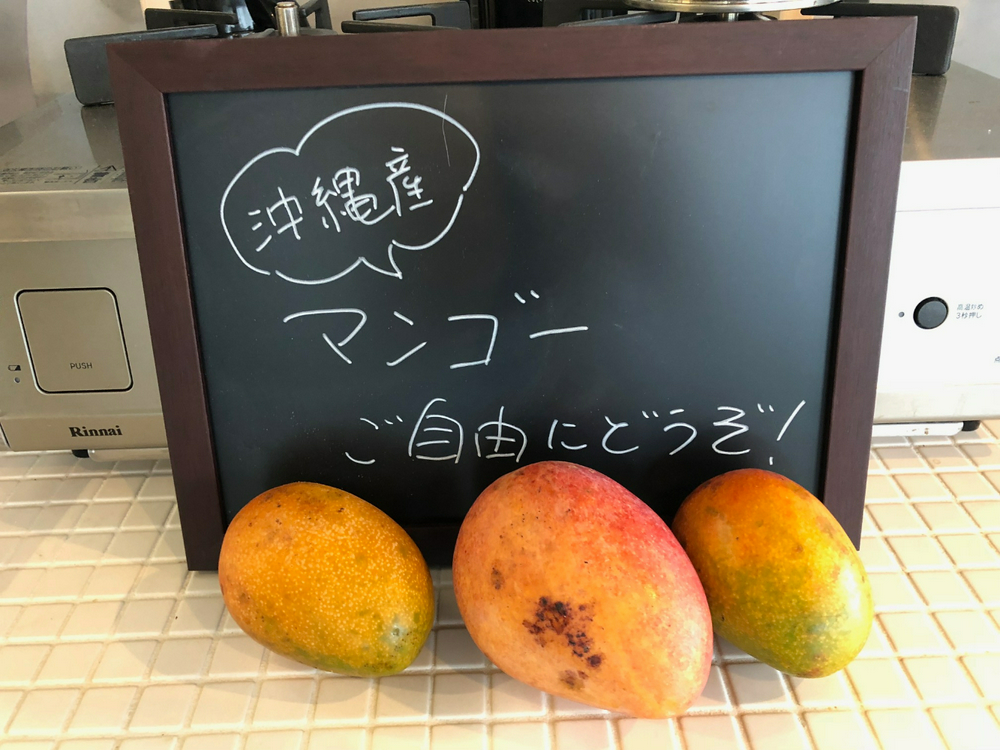 沖縄産
マンゴー
ご自由にどうぞ!
PUSH
Rinnai
高温炒め
3秒押し